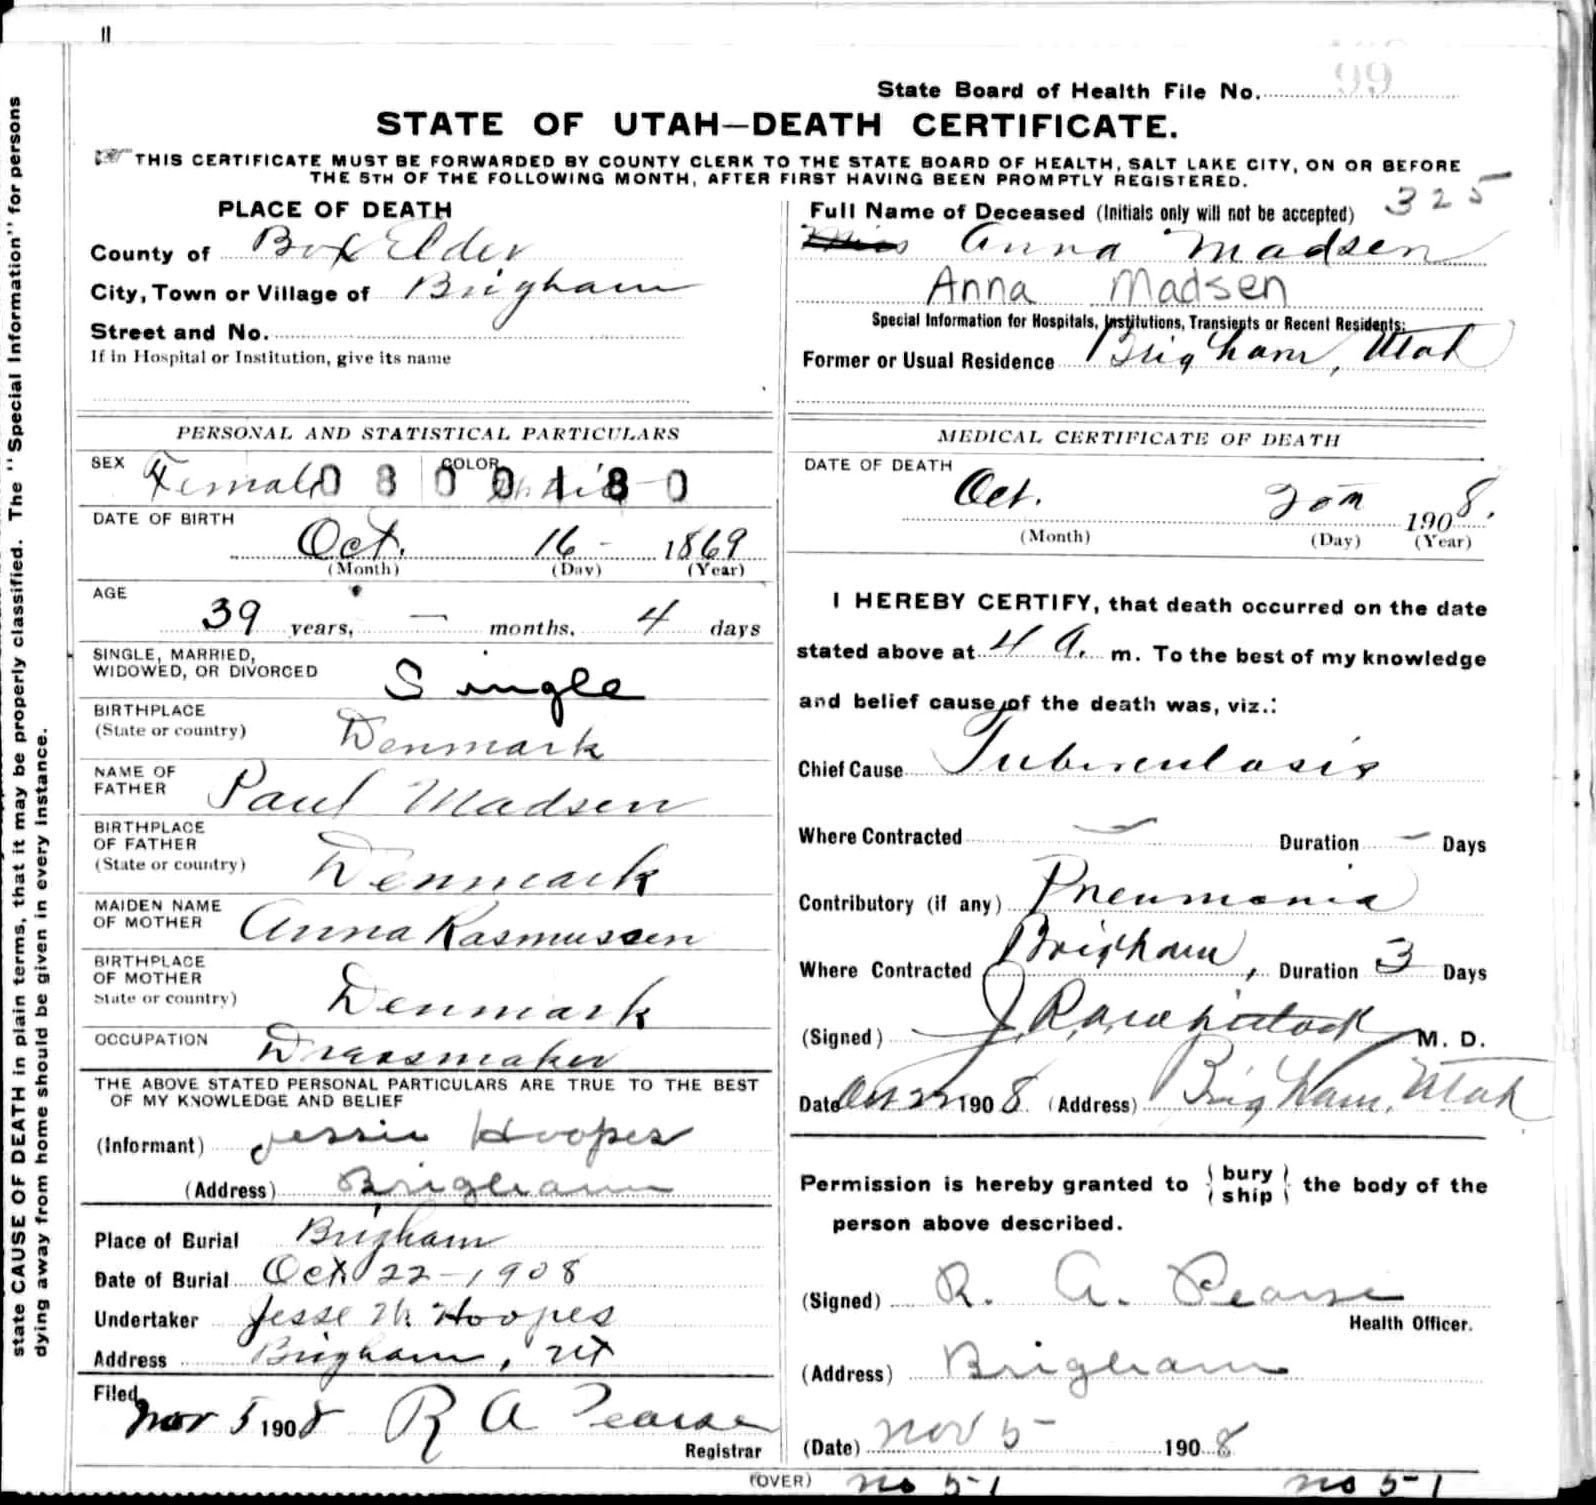 state CAUSE OF DEATH in plain terms, that it may be properly classified. The "Special Information" for persons
dying away from home should be given in every instance.
State Board of Health File No. 99
STATE OF UTAH—DEATH CERTIFICATE.
THIS CERTIFICATE MUST BE FORWARDED BY COUNTY CLERK TO THE STATE BOARD OF HEALTH, SALT LAKE CITY, ON OR BEFORE
THE 5TH OF THE FOLLOWING MONTH, AFTER FIRST HAVING BEEN PROMPTLY REGISTERED.
325
PLACE OF DEATH
County of Box Elder
City, Town or Village of Brigham
Street and No.
If in Hospital or Institution, give its name
Full Name of Deceased (Initials only will not be accepted)
Miss Anna Madsen
Anna Madsen
Special Information for Hospitals, Institutions, Transients or Recent Residents:
Former or Usual Residence Brigham, Utah
PERSONAL AND STATISTICAL PARTICULARS
SEX Female COLOR
0 8 0 0 1 8 0
DATE OF BIRTH
Oct. 16 - 1869
(Month) (Day) (Year)
AGE
39 years, — months, 4 days
SINGLE, MARRIED,
WIDOWED, OR DIVORCED Single
BIRTHPLACE
(State or country) Denmark
NAME OF
FATHER Paul Madsen
BIRTHPLACE
OF FATHER
(State or country) Denmark
MAIDEN NAME
OF MOTHER Anna Rasmussen
BIRTHPLACE
OF MOTHER
State or country) Denmark
OCCUPATION Dressmaker
THE ABOVE STATED PERSONAL PARTICULARS ARE TRUE TO THE BEST
OF MY KNOWLEDGE AND BELIEF
(Informant) Jessie Hoopes
(Address) Brigham
Place of Burial Brigham
Date of Burial Oct 22-1908
Undertaker Jesse W. Hoopes
Address Brigham, Ut
Filed Nov 5 1908 R A Pearse
Registrar
MEDICAL CERTIFICATE OF DEATH
DATE OF DEATH
Oct. 20th 1908.
(Month) (Day) (Year)
I HEREBY CERTIFY, that death occurred on the date
stated above at 4 A. m. To the best of my knowledge
and belief cause of the death was, viz.:
Chief Cause Tuberculosis
Where Contracted — Duration — Days
Contributory (if any) Pneumonia
Where Contracted Brigham, Duration 3 Days
(Signed) M. D.
Date Oct 22 1908 (Address) Brigham, Utah
Permission is hereby granted to { bury } the body of the
{ ship }
person above described.
(Signed) R. A. Pearse
Health Officer.
(Address) Brigham
(Date) Nov 5 1908
(OVER) no 51 no 51